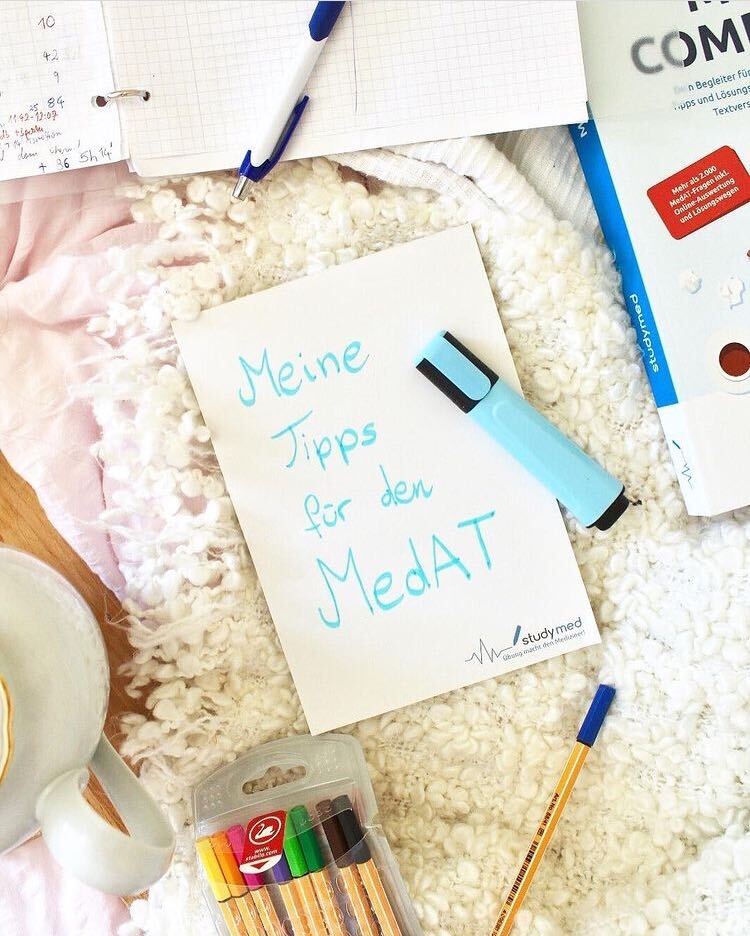 10
42
9
25 84
11:42-12:07
+ 36 5h 14'
COM
Begleiter für
Tipps und Lösungs
Textvers
Mehr als 2.000
MedAT-Fragen inkl.
Online-Auswertung
und Lösungswegen
studymed
Meine
Tipps
für den
MedAT
studymed
Übung macht den Mediziner!
www.
stabilo.com